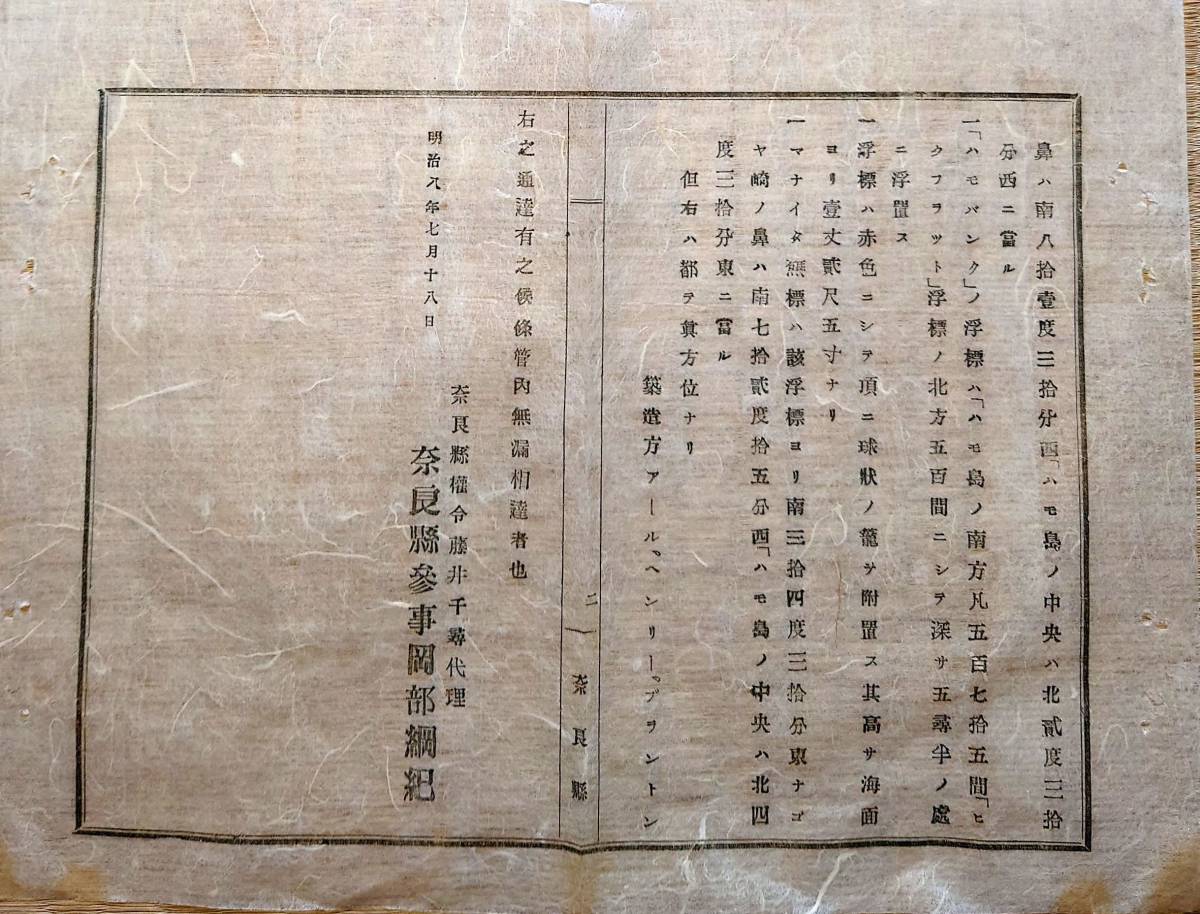 鼻ハ南八拾壹度三拾分西「ハモ島ノ中央ハ北貳度三拾
分西ニ當ル
一「ハモバンク」ノ浮標ハ「ハモ島ノ南方凡五百七拾五間「ヒ
クフラット」浮標ノ北方五百間ニシテ深サ五尋半ノ處
ニ浮置ス
一浮標ハ赤色ニシテ頂ニ球狀ノ籠ヲ附置ス其高サ海面
ヨリ壹丈貳尺五寸ナリ
一マナイタ無標ハ該浮標ヨリ南三拾四度三拾分東ナゴ
ヤ崎ノ鼻ハ南七拾貳度拾五分西「ハモ島ノ中央ハ北四
度三拾分東ニ當ル
但右ハ都テ眞方位ナリ
築造方アール、ヘンリー、ブラントン
二
奈良縣
右之通達有之候條管内無漏相達者也
明治八年七月十八日
奈良縣權令藤井千尋代理
奈良縣參事岡部綱紀